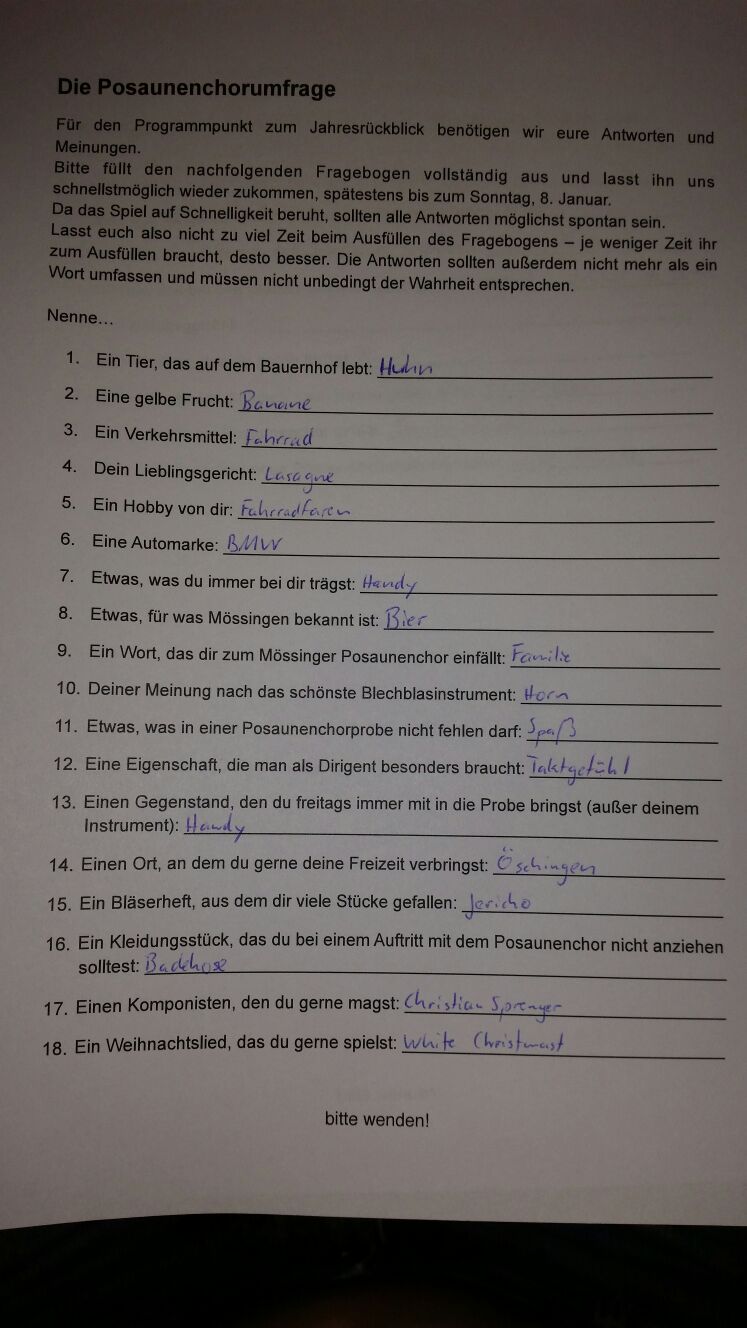 Die Posaunenchorumfrage
Für den Programmpunkt zum Jahresrückblick benötigen wir eure Antworten und
Meinungen.
Bitte füllt den nachfolgenden Fragebogen vollständig aus und lasst ihn uns
schnellstmöglich wieder zukommen, spätestens bis zum Sonntag, 8. Januar.
Da das Spiel auf Schnelligkeit beruht, sollten alle Antworten möglichst spontan sein.
Lasst euch also nicht zu viel Zeit beim Ausfüllen des Fragebogens – je weniger Zeit ihr
zum Ausfüllen braucht, desto besser. Die Antworten sollten außerdem nicht mehr als ein
Wort umfassen und müssen nicht unbedingt der Wahrheit entsprechen.
Nenne...
1. Ein Tier, das auf dem Bauernhof lebt: Huhn
2. Eine gelbe Frucht: Banane
3. Ein Verkehrsmittel: Fahrrad
4. Dein Lieblingsgericht: Lasagne
5. Ein Hobby von dir: Fahrradfaren
6. Eine Automarke: BMW
7. Etwas, was du immer bei dir trägst: Handy
8. Etwas, für was Mössingen bekannt ist: Bier
9. Ein Wort, das dir zum Mössinger Posaunenchor einfällt: Familie
10. Deiner Meinung nach das schönste Blechblasinstrument: Horn
11. Etwas, was in einer Posaunenchorprobe nicht fehlen darf: Spaß
12. Eine Eigenschaft, die man als Dirigent besonders braucht: Taktgefühl
13. Einen Gegenstand, den du freitags immer mit in die Probe bringst (außer deinem
Instrument): Handy
14. Einen Ort, an dem du gerne deine Freizeit verbringst: Öschingen
15. Ein Bläserheft, aus dem dir viele Stücke gefallen: Jericho
16. Ein Kleidungsstück, das du bei einem Auftritt mit dem Posaunenchor nicht anziehen
solltest: Badehose
17. Einen Komponisten, den du gerne magst: Christian Sprenger
18. Ein Weihnachtslied, das du gerne spielst: White Christmast
bitte wenden!